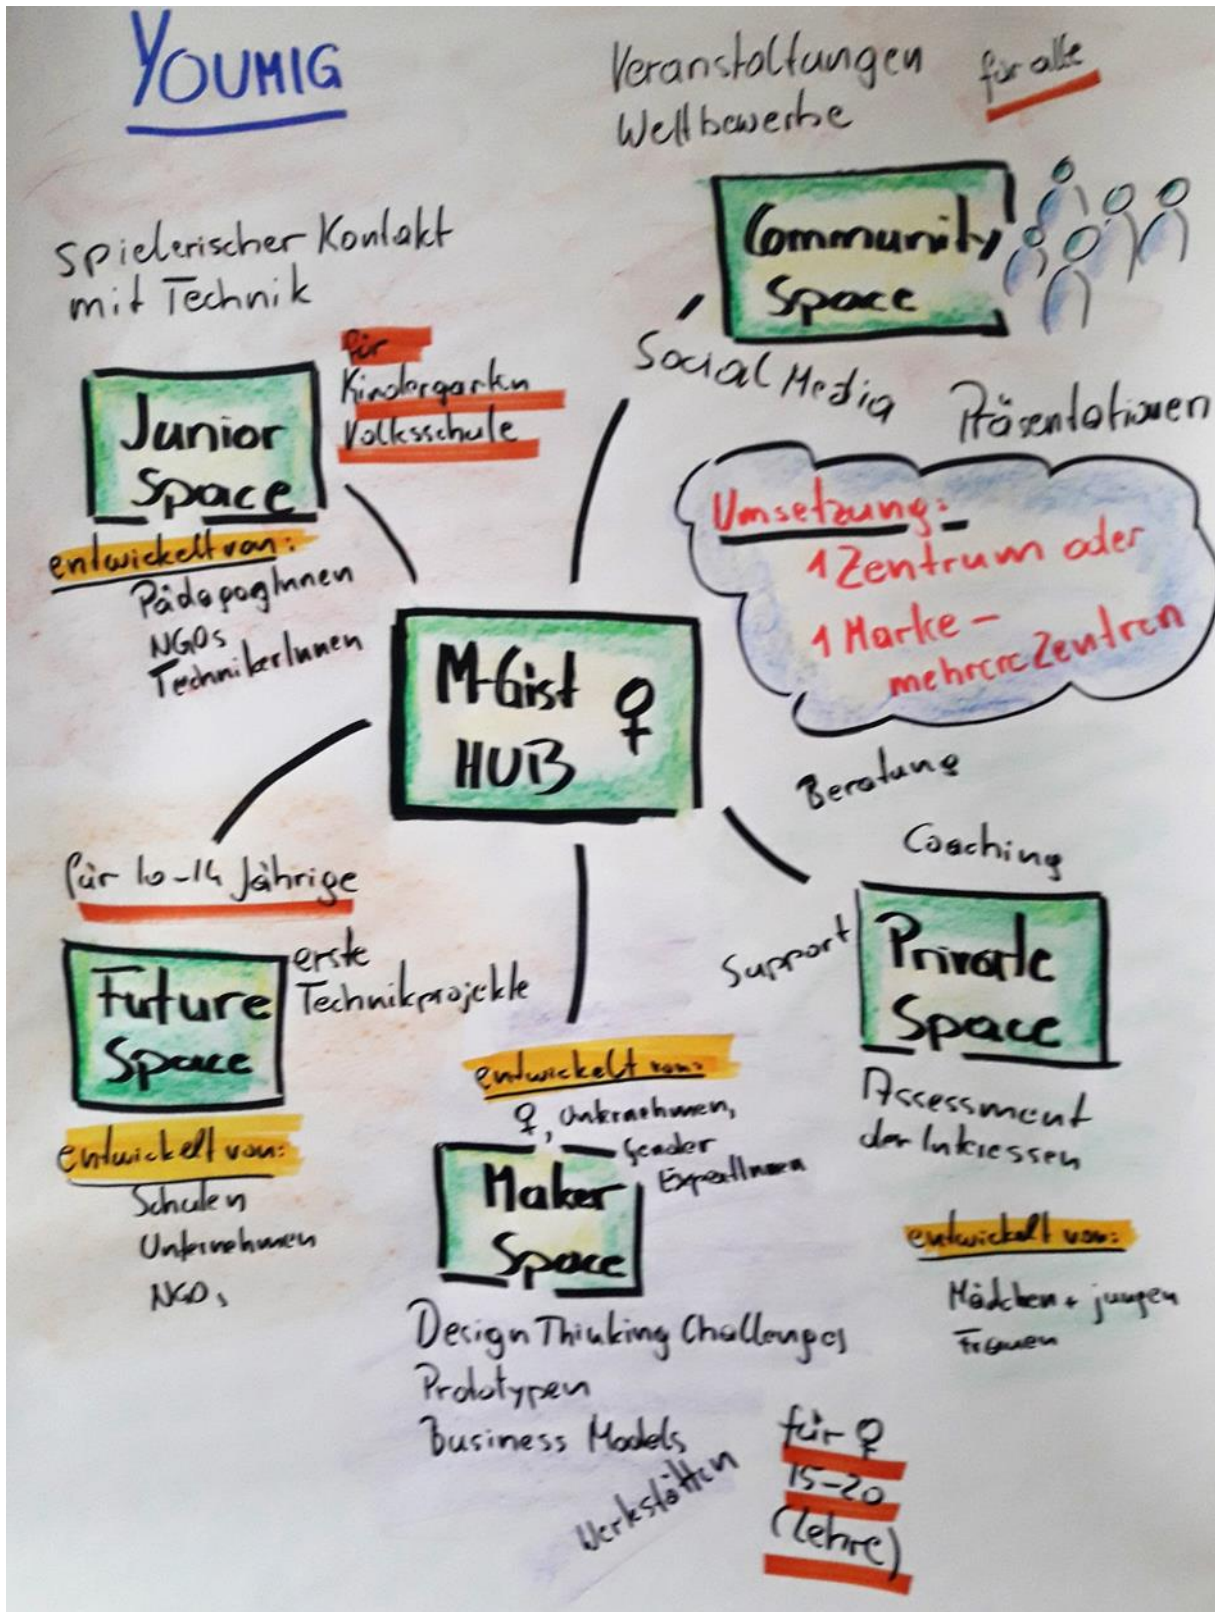 YOUMIG
Veranstaltungen
Wettbewerbe
für alle
Community
Space
Social Media
Präsentationen
spielerischer Kontakt
mit Technik
für
Kindergarten
Volksschule
Junior
Space
entwickelt von:
PädagogInnen
NGOs
TechnikerInnen
Umsetzung:
1 Zentrum oder
1 Marke -
mehrere Zentren
M-Gist ♀
HUB
Beratung
Coaching
Support
Private
Space
Assessment
der Interessen
entwickelt von:
Mädchen + jungen
Frauen
für 10-14 Jährige
Future
Space
erste
Technikprojekte
entwickelt von:
Schulen
Unternehmen
NGOs
entwickelt von:
♀, Unternehmen,
Gender
ExpertInnen
Maker
Space
Design Thinking Challenges
Prototypen
Business Models
Werkstätten
für ♀
15-20
(Lehre)